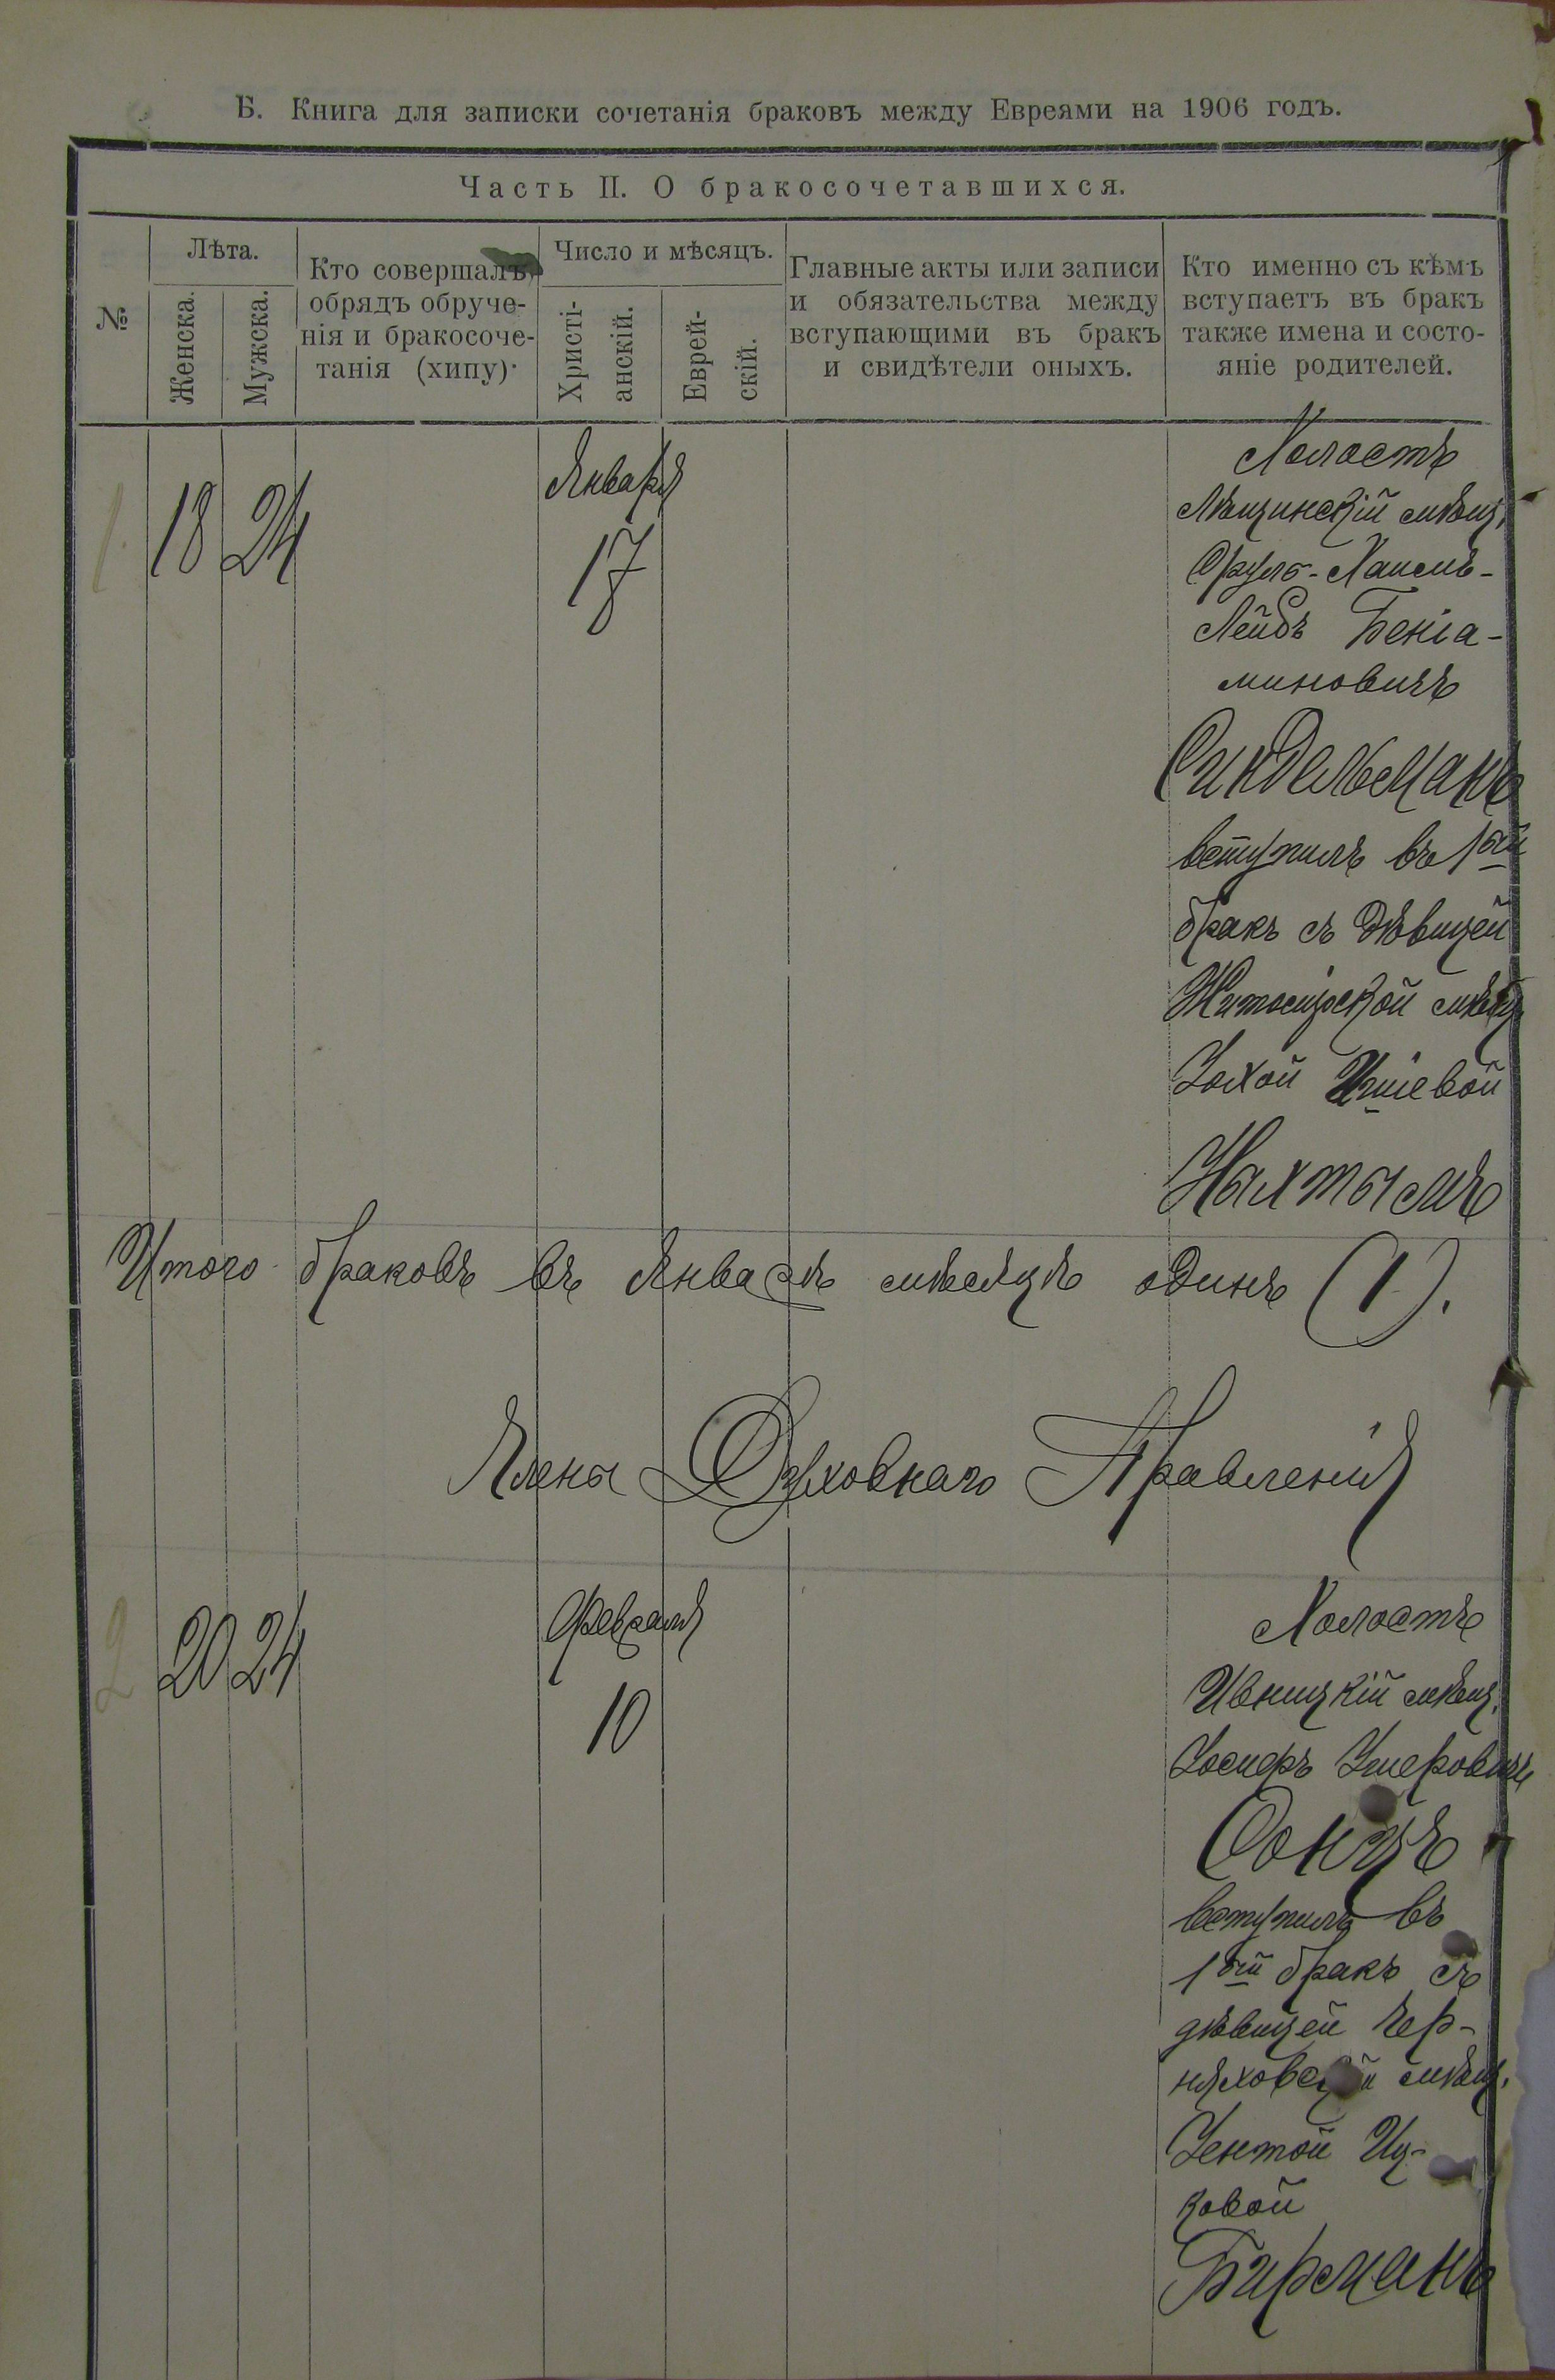 Б. Книга для записки сочетанія браковъ между Евреями на 1906 годъ.
Часть II. О бракосочетавшихся.
№
Лѣта.
Женска.
Мужска.
Кто совершалъ
обрядъ обруче-
нія и бракосоче-
танія (хипу).
Число и мѣсяцъ.
Христі-
анскій.
Еврей-
скій.
Главные акты или записи
и обязательства между
вступающими въ бракъ
и свидѣтели оныхъ.
Кто именно съ кѣмъ
вступаетъ въ бракъ
также имена и состо-
яніе родителей.
1. 18 24
Января
17
Холостъ
Лѣщинскій мѣщ.
Сруль-Хаимъ-
Лейбъ Беніа-
миновичъ
Синдельманъ
вступилъ въ 1ый
бракъ съ дѣвицей
Житомірской мѣщ.
Хой
Нахтыль
Итого браковъ въ Январѣ мѣсяцѣ одинъ (1).
Члены Духовнаго Правленія
2 20 24
Февраля
10
Холостъ
Ивницкій мѣщ.
Іосифъ Ушеровичъ
Сонцъ
вступилъ въ
1ый бракъ съ
дѣвицей Чер-
няховской мѣщ.
Іентой Иц-
ковой
Бирманъ